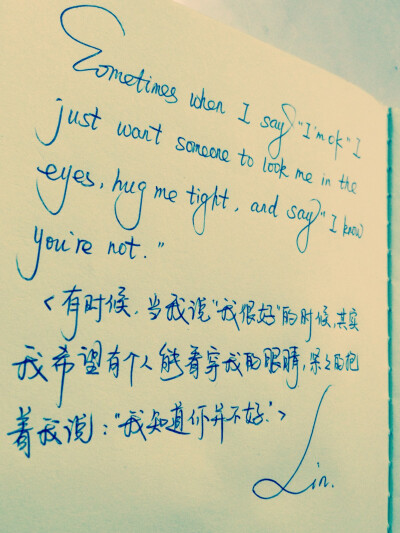 Sometimes when I say "I'm ok" I
just want someone to look me in the
eyes, hug me tight, and say "I know
you're not."
<有时候,当我说"我很好"的时候,其实
我希望有个人能看穿我的眼睛,紧紧的抱
着我说:"我知道你并不好.">
Lin.